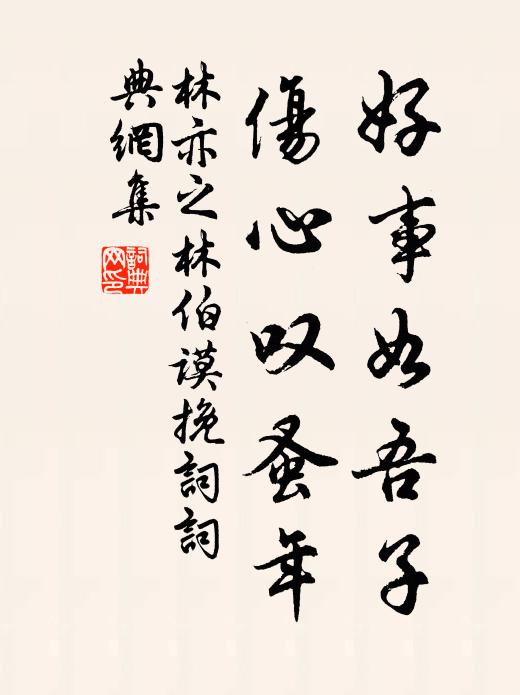 好事如吾子
傷心叹蚤年
林亦之林伯謨挽詞詞
典網集
詞典
网印